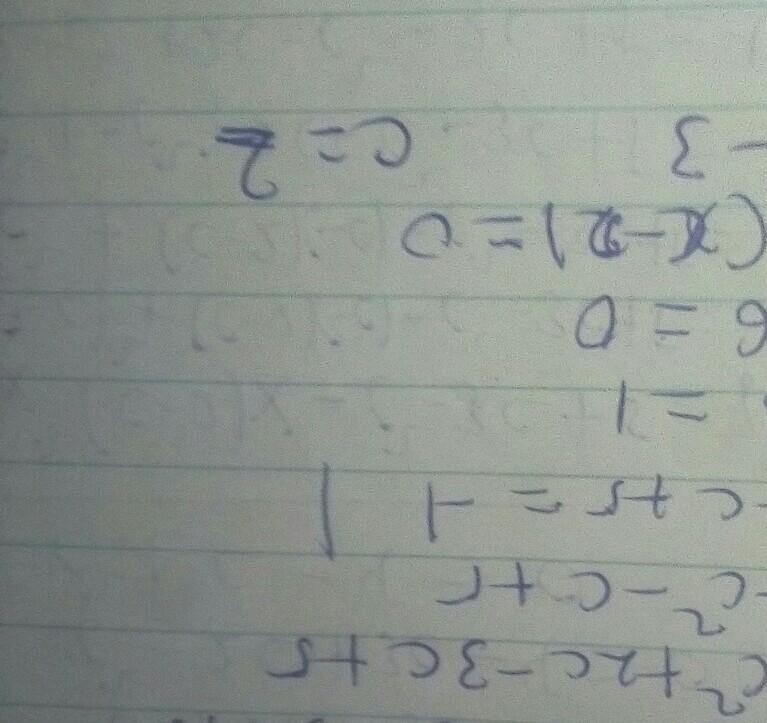 c²+2c-3c+5
-c²-c+5
-c+5 = -1
= 1
6 = 0
(x-2)=0
-3 c=2